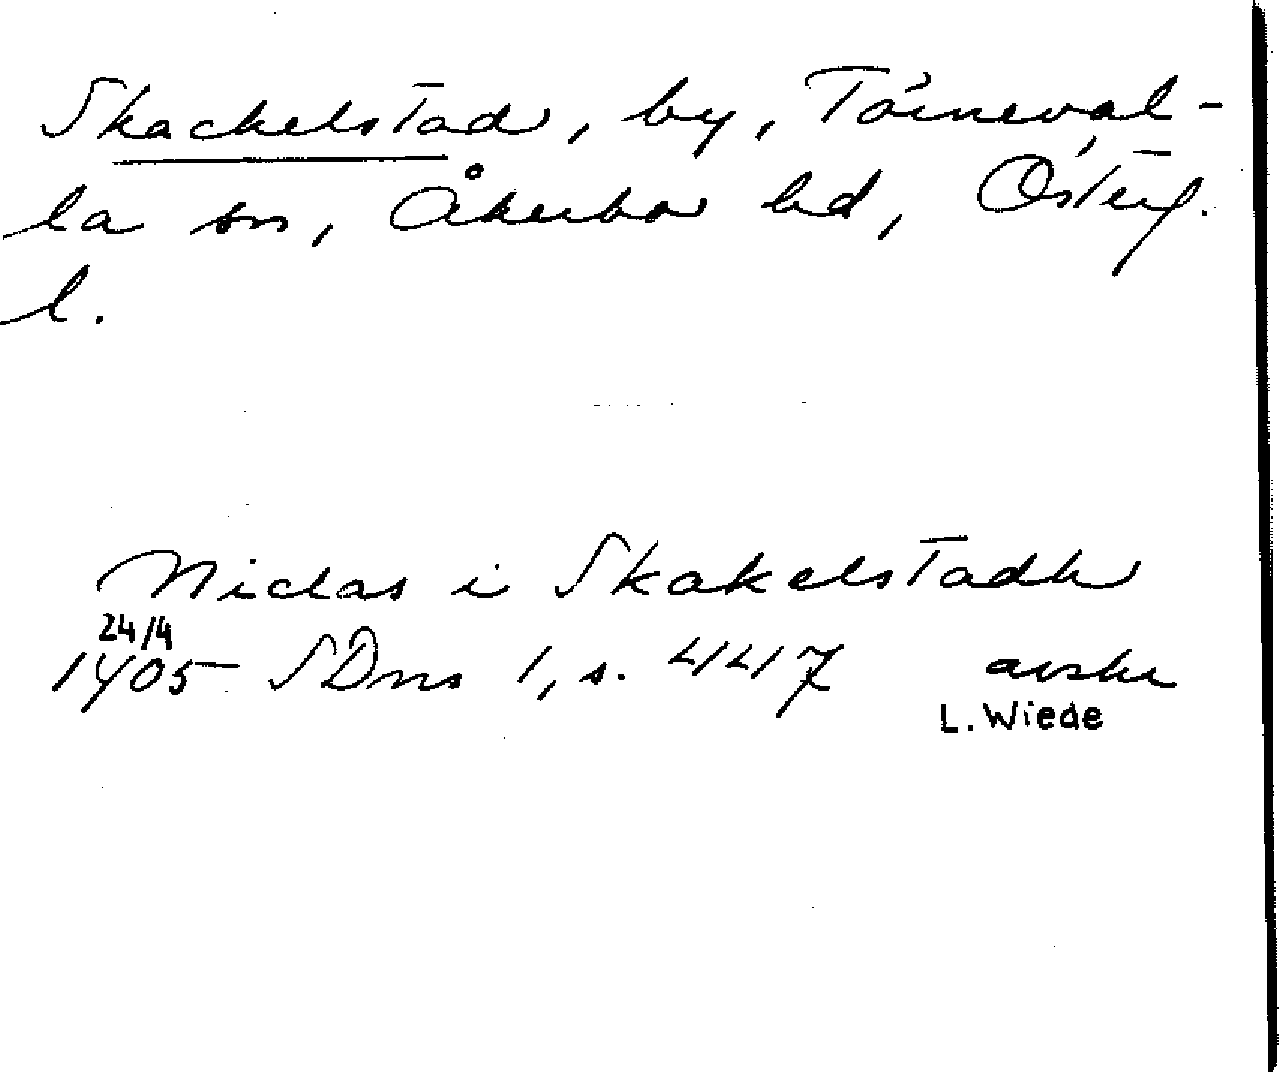 Skackelstad, by, Törneval-
la sn, Åkerbo hd, Östergl.
l.
Niclas i Skakelstadh
24/4
1405 SDns 1, s. 447 avskr
L. Wiede